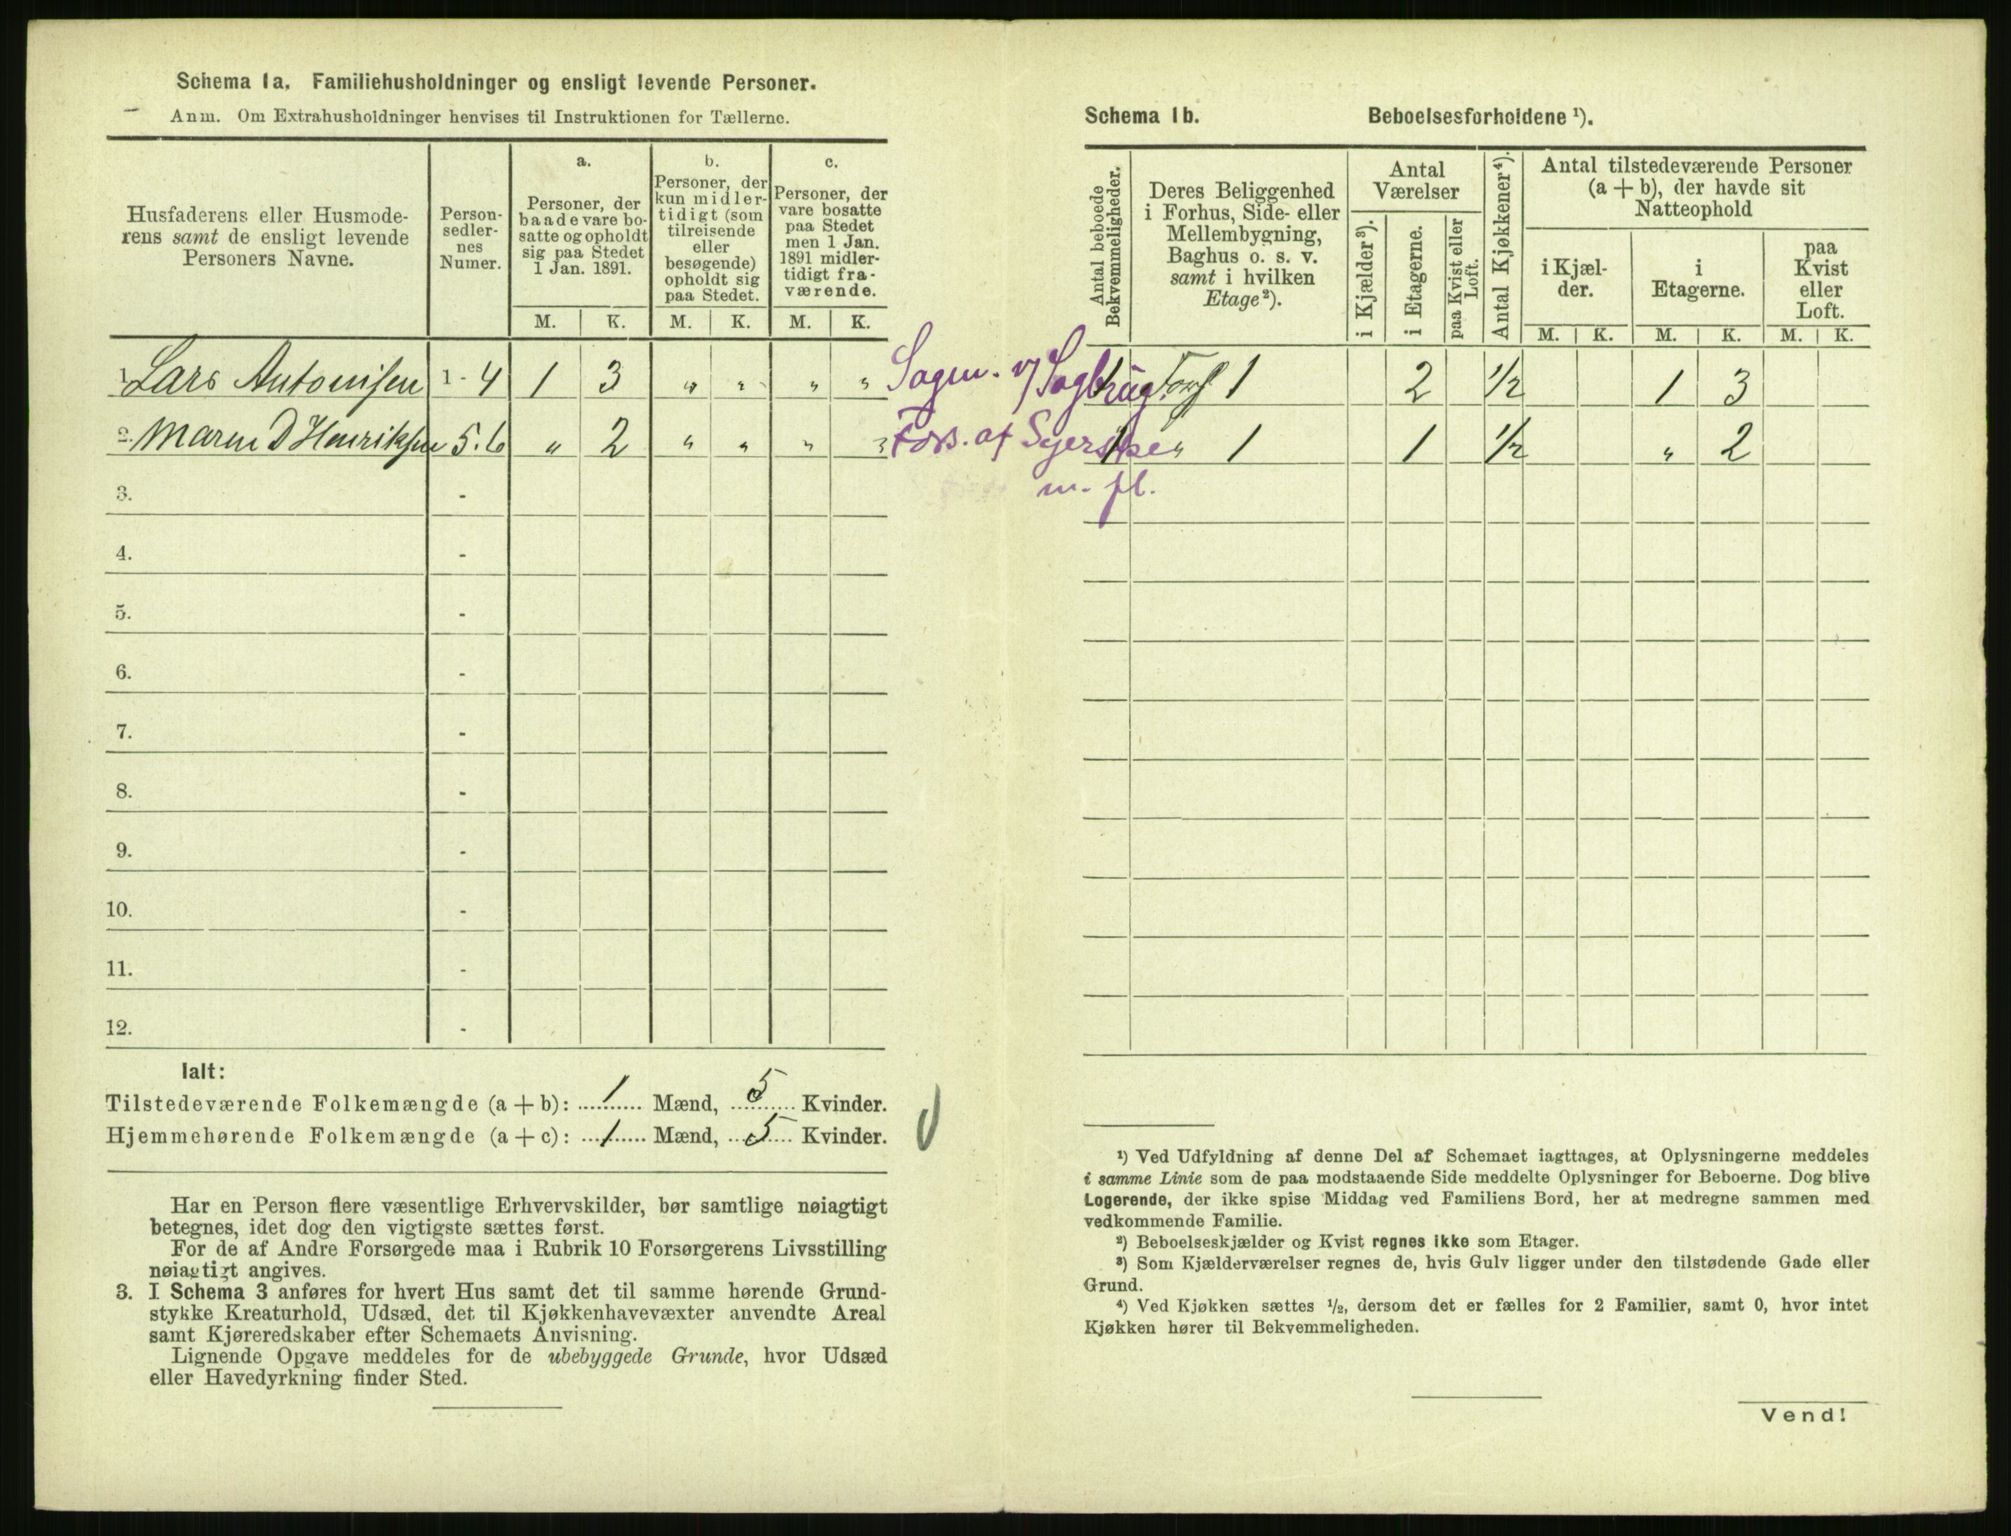 Schema 1a. Familiehusholdninger og ensligt levende Personer.
Anm. Om Extrahusholdninger henvises til Instruktionen for Tællerne.
Husfaderens eller Husmode-
rens samt de ensligt levende
Personers Navne.
Person-
sedler-
nes
Numer.
a.
Personer, der
baade vare bo-
satte og opholdt
sig paa Stedet
1 Jan. 1891.
b.
Personer, der
kun midler-
tidigt (som
tilreisende
eller
besøgende)
opholdt sig
paa Stedet.
c.
Personer, der
vare bosatte
paa Stedet
men 1 Jan.
1891 midler-
tidigt fra-
værende.
M. K. M. K. M. K.
1. Lars Antonisen 1 - 4 1 3 " " " "
2. Maren D Henriksen 5. 6 " 2 " " " "
3. -
4. -
5. -
6. -
7. -
8. -
9. -
10. -
11. -
12. -
Ialt:
Tilstedeværende Folkemængde (a + b): 1 Mænd, 5 Kvinder.
Hjemmehørende Folkemængde (a + c): 1 Mænd, 5 Kvinder.
Har en Person flere væsentlige Erhvervskilder, bør samtlige nøiagtigt
betegnes, idet dog den vigtigste sættes først.
For de af Andre Forsørgede maa i Rubrik 10 Forsørgerens Livsstilling
nøiagtigt angives.
3. I Schema 3 anføres for hvert Hus samt det til samme hørende Grund-
stykke Kreaturhold, Udsæd, det til Kjøkkenhavevæxter anvendte Areal
samt Kjøreredskaber efter Schemaets Anvisning.
Lignende Opgave meddeles for de ubebyggede Grunde, hvor Udsæd
eller Havedyrkning finder Sted.
Schema 1b. Beboelsesforholdene ¹).
Antal beboede
Bekvemmeligheder.
Deres Beliggenhed
i Forhus, Side- eller
Mellembygning,
Baghus o. s. v.
samt i hvilken
Etage ²).
Antal
Værelser
i Kjælder ³).
i Etagerne.
paa Kvist eller
Loft.
Antal Kjøkkener ⁴).
Antal tilstedeværende Personer
(a + b), der havde sit
Natteophold
i Kjæl-
der.
i
Etagerne.
paa
Kvist
eller
Loft.
M. K. M. K. M. K.
Sagm. v/ Sagbrug 1 Forh 1 2 1/2 1 3
Fors. af 1 " 1 1 1/2 " 2
m. fl.
¹) Ved Udfyldning af denne Del af Schemaet iagttages, at Oplysningerne meddeles
i samme Linie som de paa modstaaende Side meddelte Oplysninger for Beboerne. Dog blive
Logerende, der ikke spise Middag ved Familiens Bord, her at medregne sammen med
vedkommende Familie.
²) Beboelseskjælder og Kvist regnes ikke som Etager.
³) Som Kjælderværelser regnes de, hvis Gulv ligger under den tilstødende Gade eller
Grund.
⁴) Ved Kjøkken sættes 1/2, dersom det er fælles for 2 Familier, samt 0, hvor intet
Kjøkken hører til Bekvemmeligheden.
Vend!